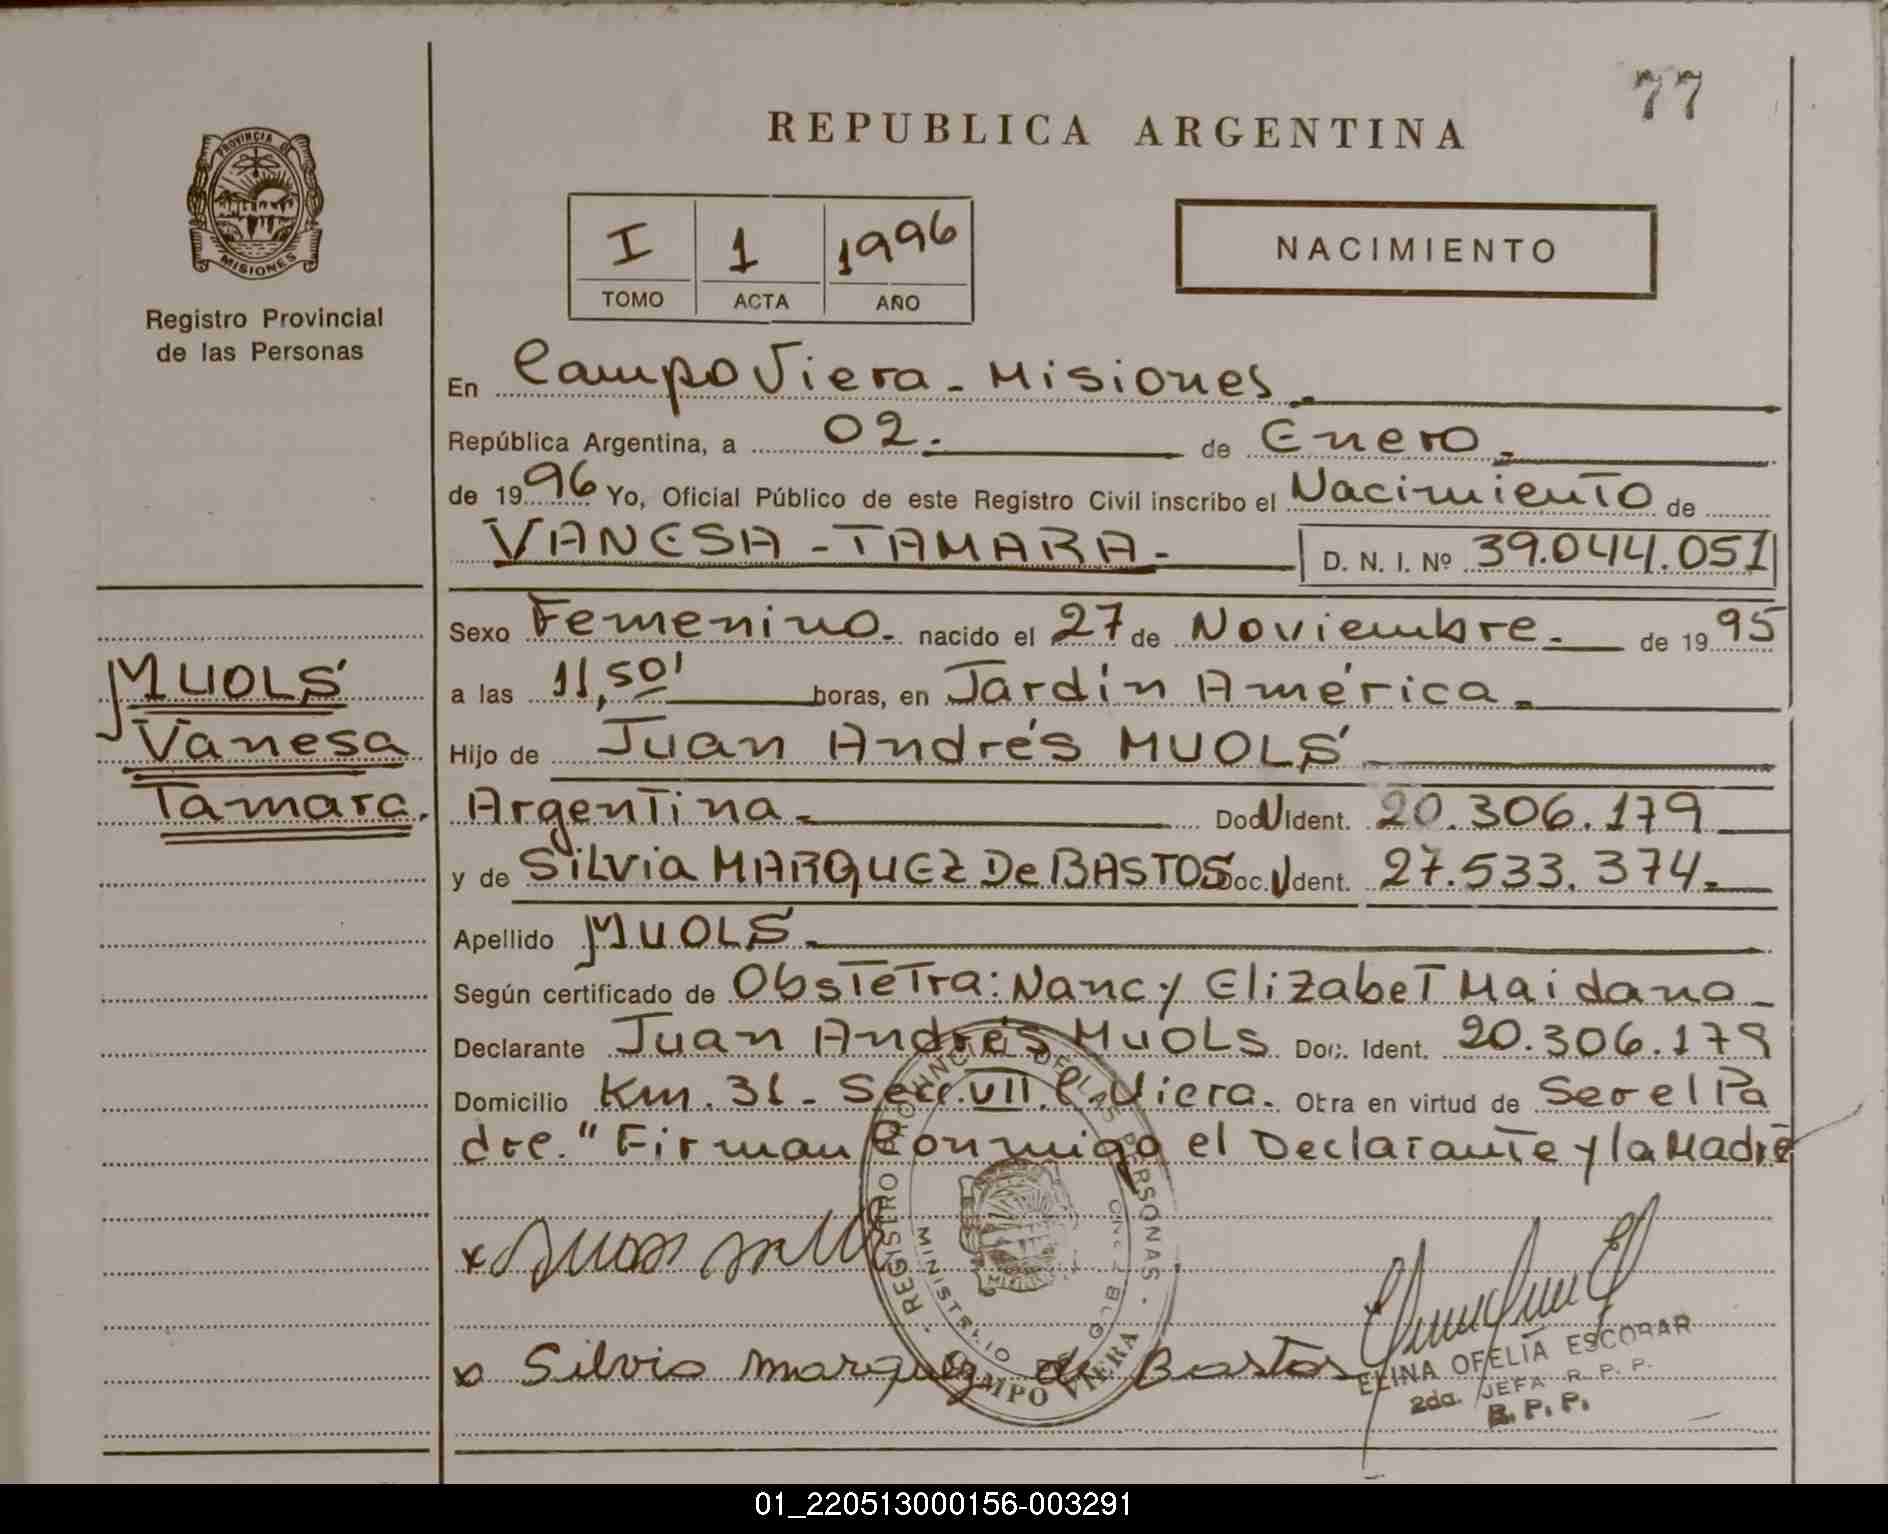 77
REPUBLICA ARGENTINA
PROVINCIA DE
MISIONES
Registro Provincial
de las Personas
I 1 1996
TOMO ACTA AÑO
NACIMIENTO
En Campo Viera - Misiones.
República Argentina, a 02. de Enero.
de 1996 Yo, Oficial Público de este Registro Civil inscribo el Nacimiento de
VANESA - TAMARA - D. N. I. Nº 39.044.051
Sexo Femenino. nacido el 27 de Noviembre. de 1995
a las 11,50' horas, en Jardín América.
Hijo de Juan Andrés MUOLS
Argentina. Doc. Ident. 20.306.179
y de Silvia MARQUEZ De BASTOS Doc. Ident. 27.533.374.
Apellido MUOLS.
Según certificado de Obstetra: Nancy Elizabet Maidana
Declarante Juan Andrés MUOLS Doc. Ident. 20.306.179
Domicilio Km. 31 - Secc. VII. C. Viera. Obra en virtud de Ser el Pa
dre." Firman Conmigo el Declarante y la Madre
MUOLS
Vanesa
Tamara.
REGISTRO PROVINCIAL DE LAS PERSONAS
MINISTERIO
CAMPO VIERA
x Silvia Marquez de Bastos
ELINA OFELIA ESCOBAR
2da. JEFA R. P. P.
R. P. P.
01_220513000156-003291